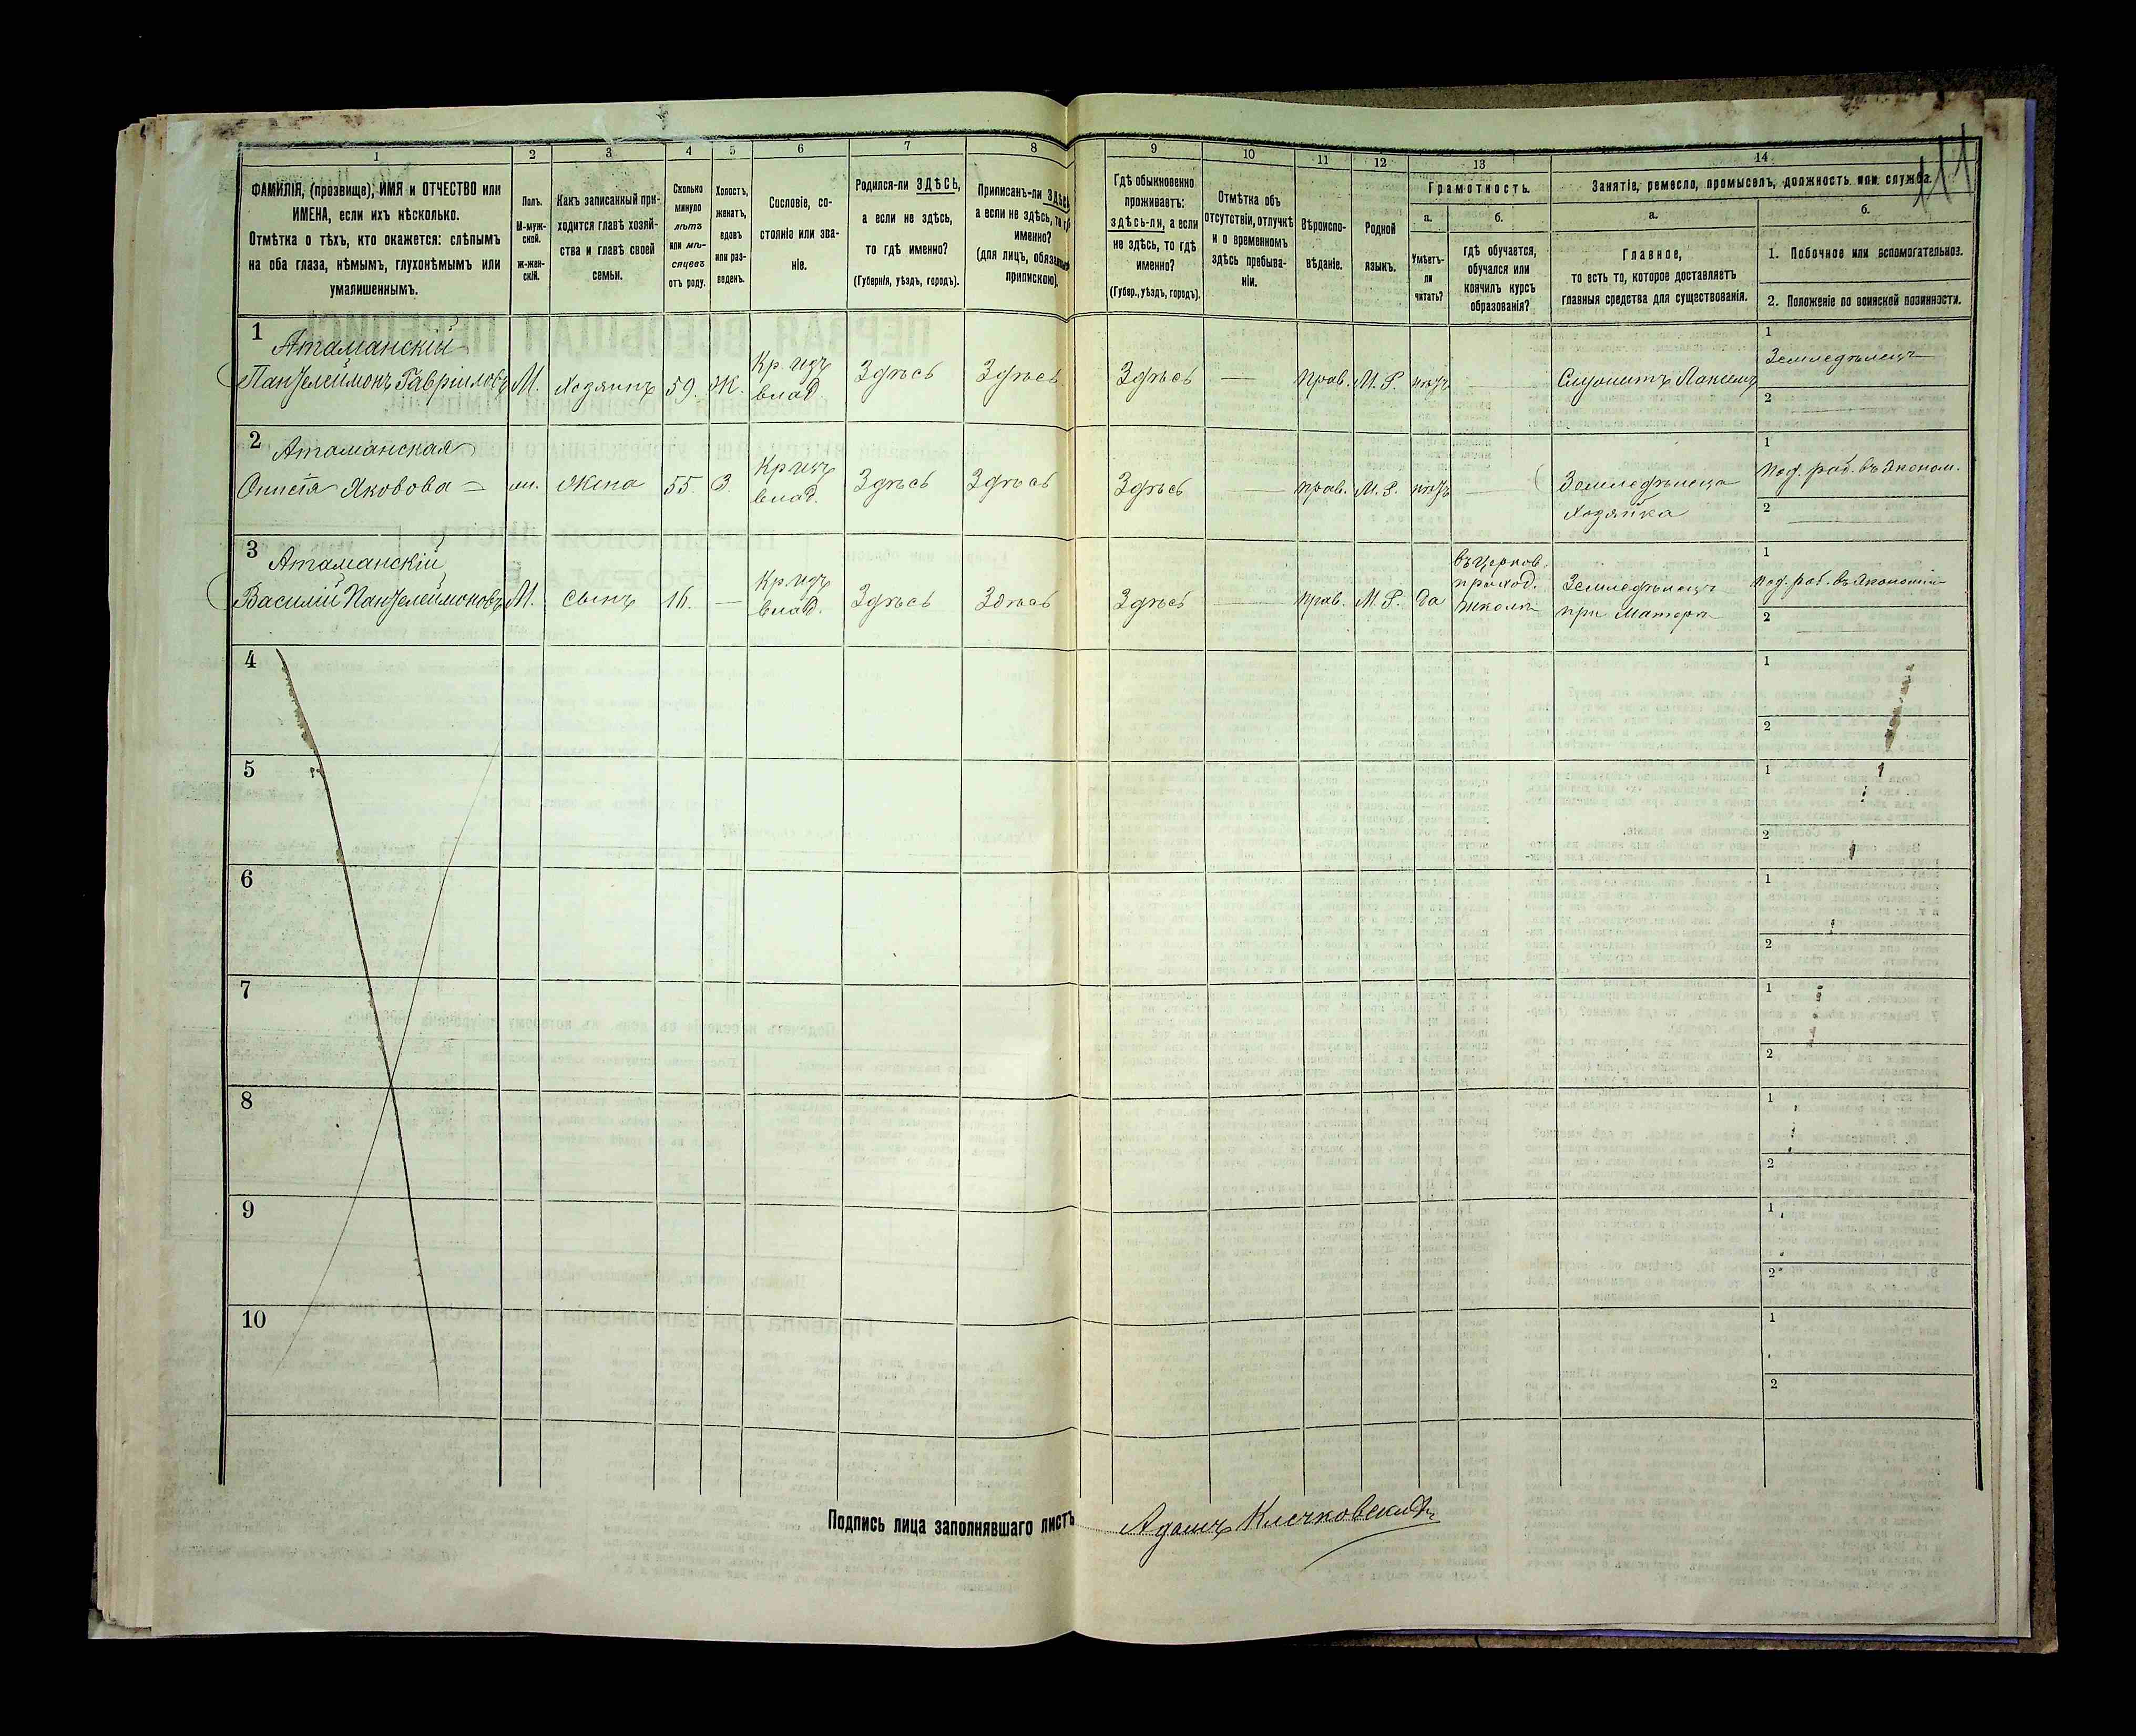 111
1
2
3
4
5
6
7
8
9
10
11
12
13
14
ФАМИЛІЯ, (прозвище), ИМЯ и ОТЧЕСТВО или
ИМЕНА, если ихъ нѣсколько.
Отмѣтка о тѣхъ, кто окажется: слѣпымъ
на оба глаза, нѣмымъ, глухонѣмымъ или
умалишеннымъ.
Полъ.
М-муж-
ской.
ж-жен-
скій.
Какъ записанный при-
ходится главѣ хозяй-
ства и главѣ своей
семьи.
Сколько
минуло
лѣтъ
или мѣ-
сяцевъ
отъ роду.
Холостъ,
женатъ,
вдовъ
или раз-
веденъ.
Сословіе, со-
стояніе или зва-
ніе.
Родился-ли ЗДѢСЬ,
а если не здѣсь,
то гдѣ именно?
(Губернія, уѣздъ, городъ).
Приписанъ-ли ЗДѢСЬ
а если не здѣсь, то гдѣ
именно?
(для лицъ, обязанныхъ
припискою).
Гдѣ обыкновенно
проживаетъ:
здѣсь-ли, а если
не здѣсь, то гдѣ
именно?
(Губер., уѣздъ, городъ).
Отмѣтка объ
отсутствіи, отлучкѣ
и о временномъ
здѣсь пребыва-
ніи.
Вѣроиспо-
вѣданіе.
Родной
языкъ.
Грамотность.
а.
Умѣетъ-
ли
читать?
б.
гдѣ обучается,
обучался или
кончилъ курсъ
образованія?
Занятіе, ремесло, промыселъ, должность или служба.
а.
Главное,
то есть то, которое доставляетъ
главныя средства для существованія.
б.
1. Побочное или вспомогательное.
2. Положеніе по воинской повинности.
1
Атаманскій
Пантелеймонъ Гавріиловъ М. Хозяинъ 59. Ж. Кр. изъ влад. Здѣсь Здѣсь Здѣсь — прав. М. Р. нѣтъ — Служитъ Лакеемъ
1
Земледѣлецъ
2
2
Атаманская
Яковова — жена 55. З. Кр. изъ влад. Здѣсь Здѣсь Здѣсь — прав. М. Р. нѣтъ — Земледѣлица
Хозяйка
1
под. раб. въ эконом.
2
3
Атаманскій
Василій Пантелеймоновъ М. сынъ 16. — Кр. изъ влад. Здѣсь Здѣсь Здѣсь — прав. М. Р. да
въ церков.
приход.
школѣ
Земледѣлецъ
при Матери
1
под. раб. въ экономіи
2
4
1
2
5
1
2
6
1
2
7
1
2
8
1
2
9
1
2
10
1
2
Подпись лица заполнявшаго листъ Адамъ Клечковскій